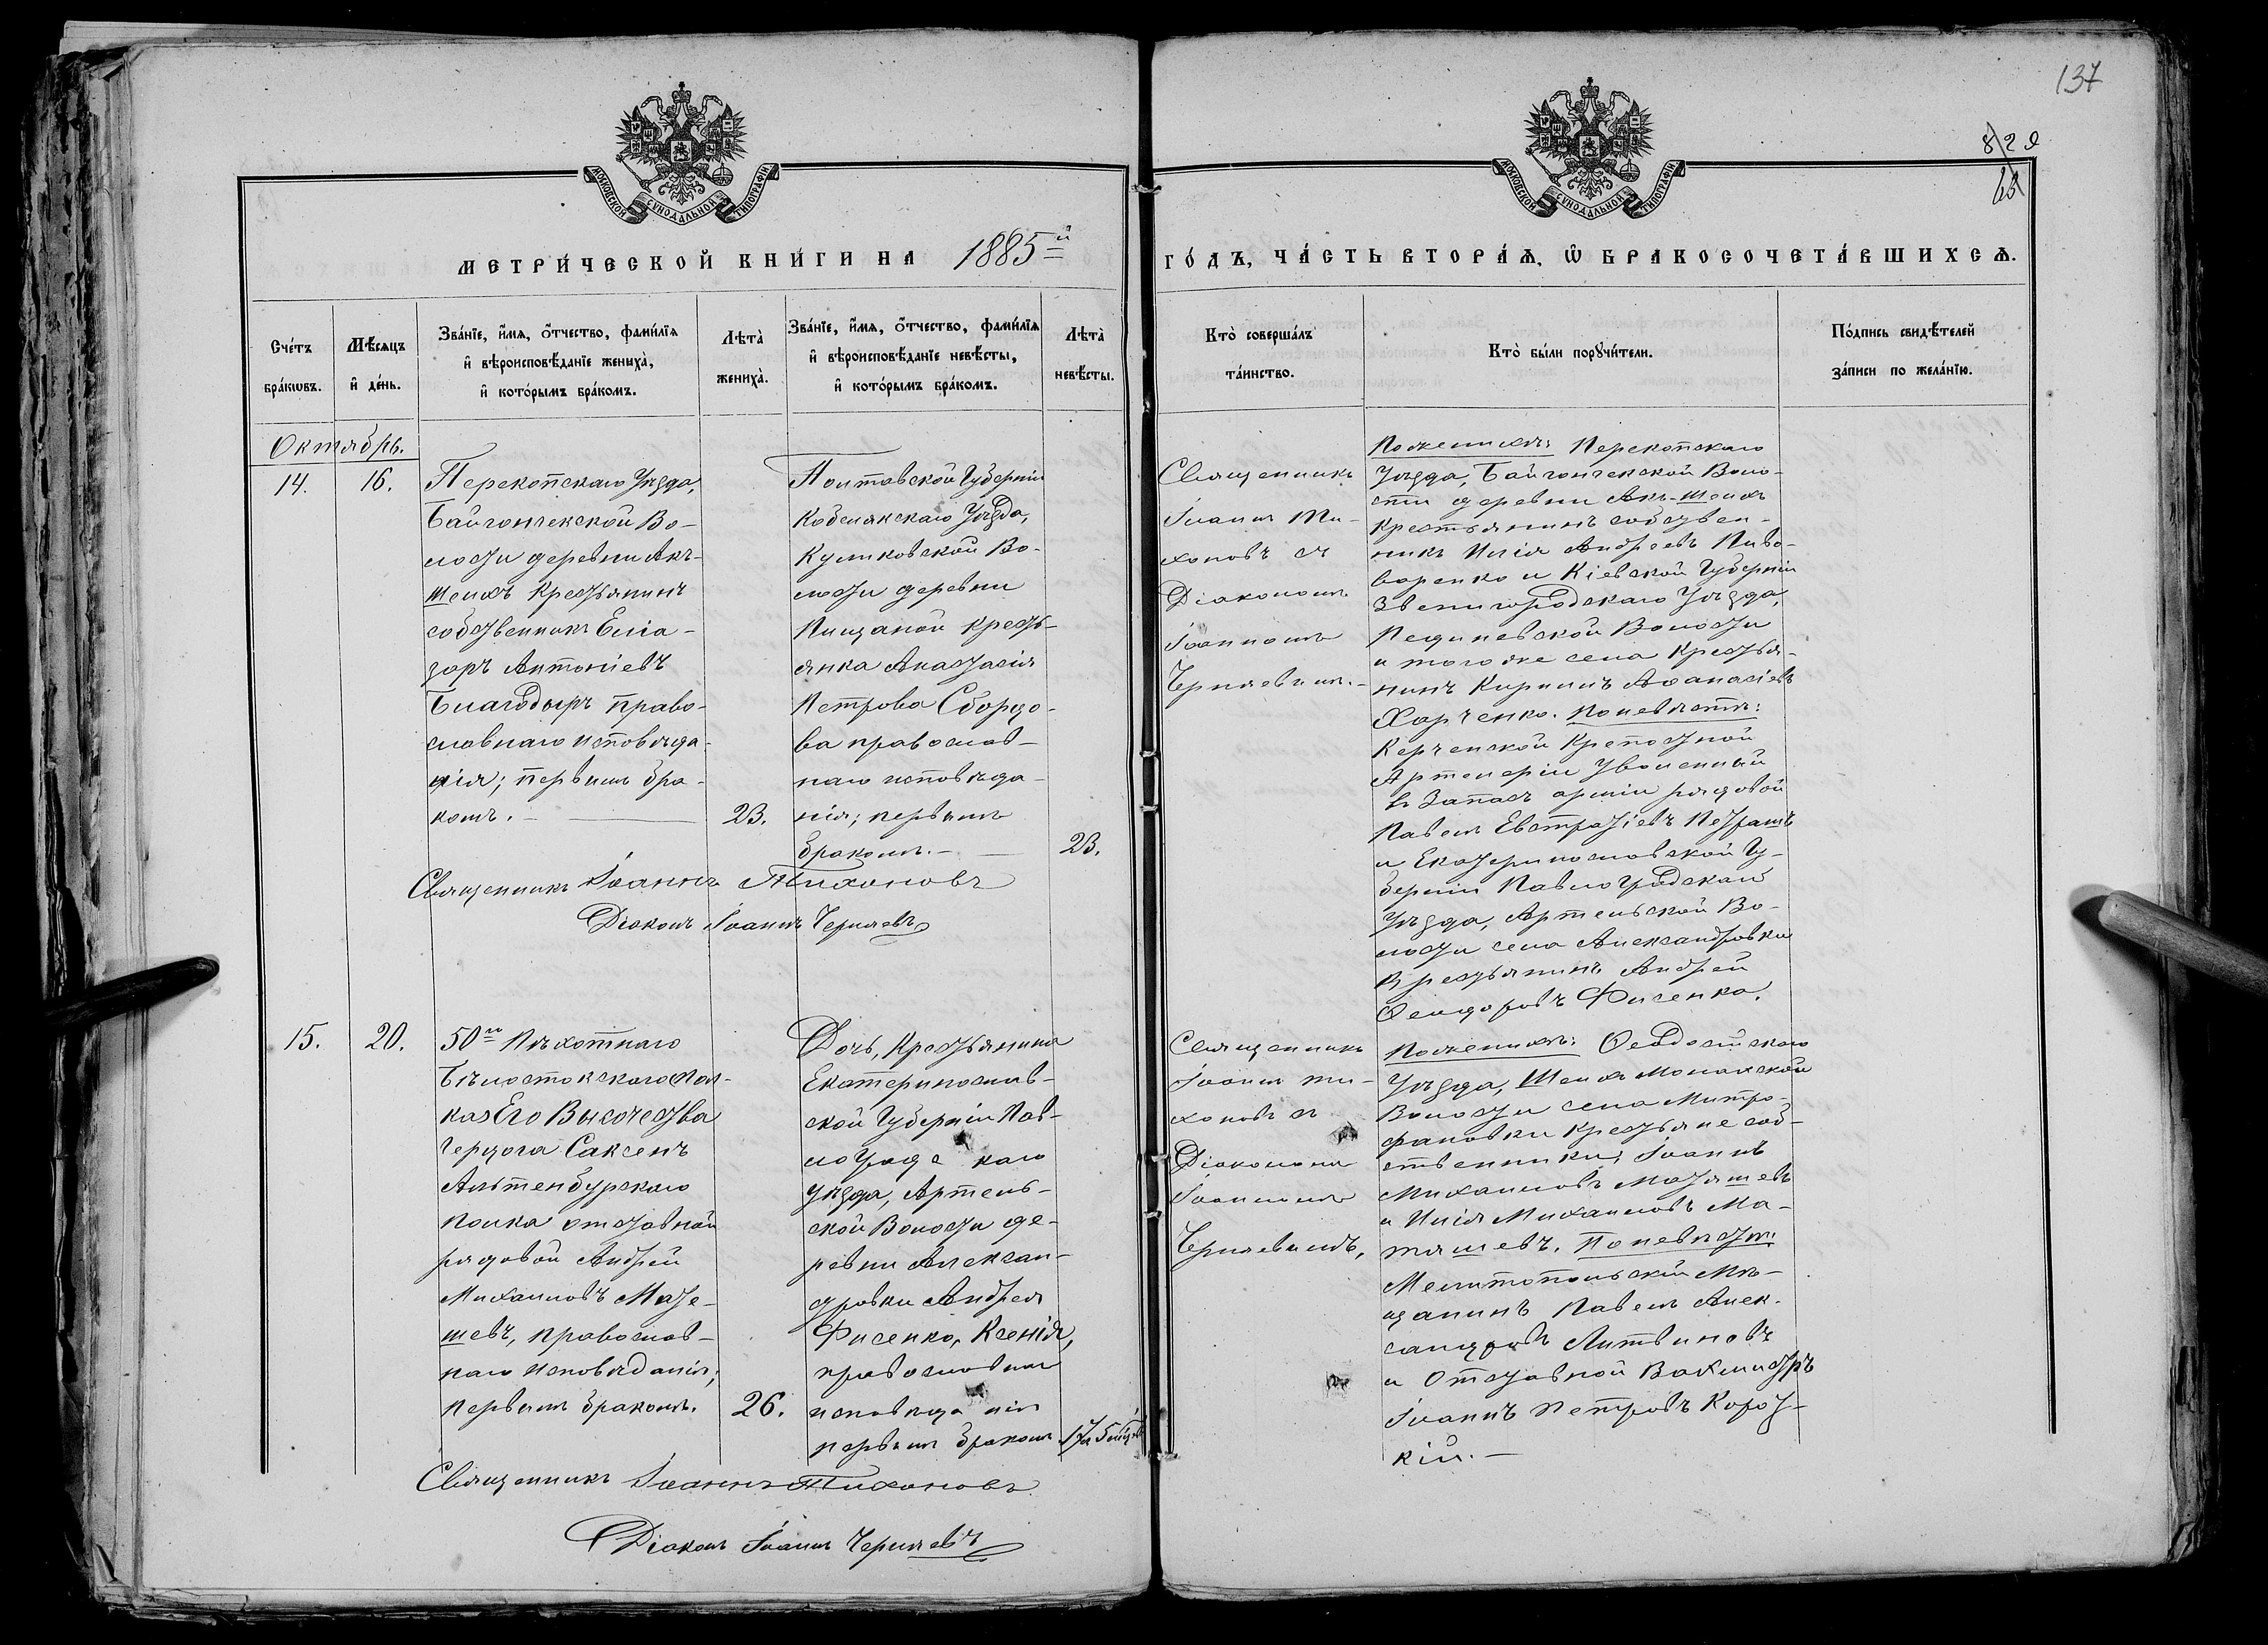 137
82 е
МОСКОВСКОЙ СУНОДАЛЬНОЙ ТИПОГРАФІИ
МОСКОВСКОЙ СУНОДАЛЬНОЙ ТИПОГРАФІИ
МЕТРИ́ЧЕСКОЙ КНИ́ГИ НА 1885й
ГО́ДЪ, ЧА́СТЬ ВТОРА́Ѧ, Ѡ҆ БРАКОСОЧЕТА́ВШИХСѦ.
Сче́тъ бра́кѡвъ.
Мѣ́сяцъ и҆ де́нь.
Зва́нїе, и҆́мѧ, ѻ҆́тчество, фами́лїѧ
и҆ вѣроисповѣ́данїе жениха̀,
и҆ кото́рымъ бра́комъ.
Лѣта̀ жениха̀.
Зва́нїе, и҆́мѧ, ѻ҆́тчество, фами́лїѧ
и҆ вѣроисповѣ́данїе невѣ́сты,
и҆ кото́рымъ бра́комъ.
Лѣта̀ невѣ́сты.
Кто̀ соверша́лъ
та́инство.
Кто̀ бы́ли порꙋчи́тели.
По́дпись свидѣ́телей
за́писи по жела́нїю.
Октябрь.
14.
16.
Перекопскаго Уѣзда,
Байгончекской Во-
лости деревни Акъ-
шеихъ Крестьянинъ
собственникъ Елиа-
заръ Антоніевъ
Благодыръ право-
славнаго исповѣда-
нія; первымъ бра-
комъ. —
23.
Полтавской Губерніи
Кобелякскаго Уѣзда,
Куликовской Во-
лости деревни
Пищаной Кресть-
янка Анастасія
Петрова Сбордо-
ва православ-
наго исповѣда-
нія; первымъ
бракомъ. —
23.
Священникъ Іоаннъ Тихоновъ
Діаконъ Іоаннъ Черняевъ
Священникъ
Іоаннъ Ти-
хоновъ съ
Діакономъ
Іоанномъ
Черняевымъ. —
По женихѣ: Перекопскаго
Уѣзда, Байгончекской Воло-
сти деревни Акъ-шеихъ
крестьянинъ собствен-
никъ Илія Андреевъ Пиво-
варенко и Кіевской Губерніи
Звенигородскаго Уѣзда,
Пединовской Волости
и того же села Крестья-
нинъ Кириллъ Афанасіевъ
Харченко. По невѣстѣ:
Керченской Крепостной
Артилеріи Уволенный
въ Запасъ арміи рядовой
Павелъ Евстратіевъ Петрашъ
и Екатеринославской Гу-
берніи Павлоградскаго
Уѣзда, Артельской Во-
лости села Александровки
Крестьянинъ Андрей
Ѳеодоровъ Фисенко.
15.
20.
50го Пѣхотнаго
Бѣлостокскаго Пол-
ка Его Высочества
Герцога Саксенъ
Альтенбургскаго
полка отставной
рядовой Андрей
Михаиловъ Мате-
шевъ, православ-
наго исповѣданія;
первымъ бракомъ.
26.
Дочь, Крестьянина
Екатеринослав-
ской Губерніи Пав-
лоградскаго
уѣзда, Артель-
ской Волости де-
ревни Алексан-
дровки Андрея
Фисенко, Ксенія,
православнаго
исповѣданія
первымъ бракомъ
17 и 5 мѣс.
Священникъ Іоаннъ Тихоновъ
Діаконъ Іоаннъ Черняевъ
Священникъ
Іоаннъ Ти-
хоновъ съ
Діакономъ
Іоанномъ
Черняевымъ,
По женихѣ: Ѳеодосійскаго
Уѣзда, Шеихъ Монахской
Волости села Митро-
фановки Крестьяне соб-
ственники, Іоаннъ
Михаиловъ Матяшевъ
и Илія Михаиловъ Ма-
тяшевъ. По невѣстѣ:
Мелитопольскій Мѣ-
щанинъ Павелъ Алек-
сандровъ Литвиновъ
и Отставной Вахмистръ
Іоаннъ Петровъ Корот-
кій. —